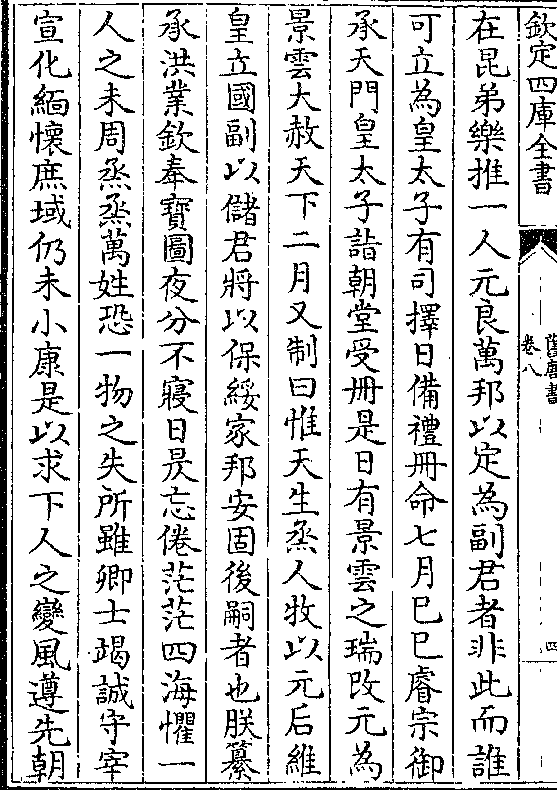 欽定四庫全書
舊唐書
卷八
四
在昆弟樂推一人元良萬邦以定為副君者非此而誰
可立為皇太子有司擇日備禮冊命七月己巳睿宗御
承天門皇太子詣朝堂受冊是日有景雲之瑞改元為
景雲大赦天下二月又制曰惟天生烝人牧以元后維
皇立國副以儲君將以保綏家邦安固後嗣者也朕纂
承洪業欽奉寶圖夜分不寢日昃忘倦茫茫四海懼一
人之未周烝烝萬姓恐一物之失所雖卿士竭誠守宰
宣化緬懷庶域仍未小康是以求下人之變風遵先朝